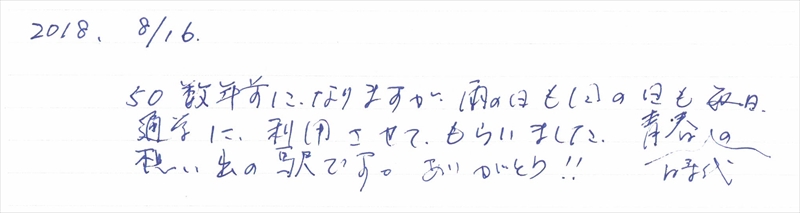 2018. 8/16.
50数年前に、なりますが、雨の日も風の日も毎日、
通学に、利用させて、もらいました、青春の
想い出の駅です。ありがとう!!
時代